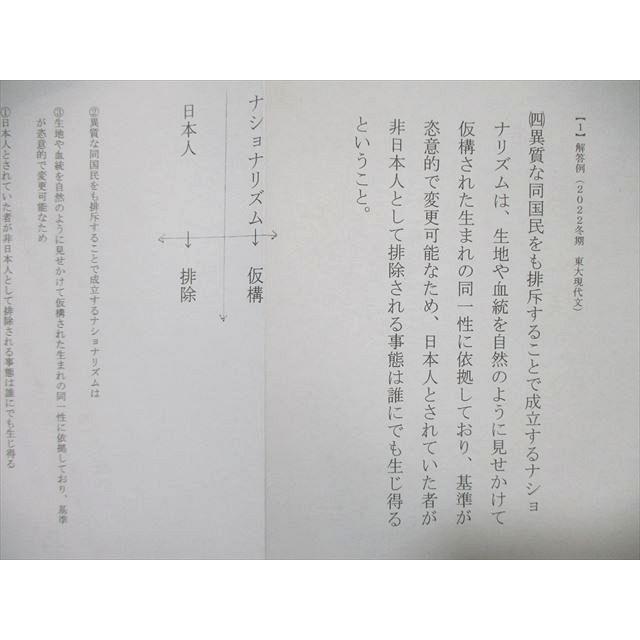 【1】解答例（2022冬期　東大現代文）
㈣異質な同国民をも排斥することで成立するナショ
ナリズムは、生地や血統を自然のように見せかけて
仮構された生まれの同一性に依拠しており、基準が
恣意的で変更可能なため、日本人とされていた者が
非日本人として排除される事態は誰にでも生じ得る
ということ。
ナショナリズム→仮構
日本人　→　排除
②異質な同国民をも排斥することで成立するナショナリズムは
③生地や血統を自然のように見せかけて仮構された生まれの同一性に依拠しており、基準
が恣意的で変更可能なため
①日本人とされていた者が非日本人として排除される事態は誰にでも生じ得る